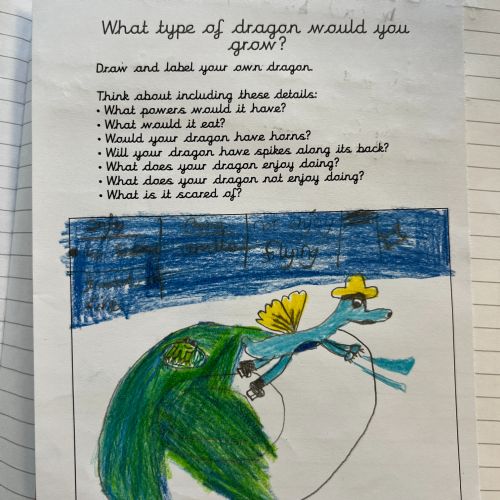 What type of dragon would you
grow?
Draw and label your own dragon.
Think about including these details:
• What powers would it have?
• What would it eat?
• Would your dragon have horns?
• Will your dragon have spikes along its back?
• What does your dragon enjoy doing?
• What does your dragon not enjoy doing?
• What is it scared of?
flying